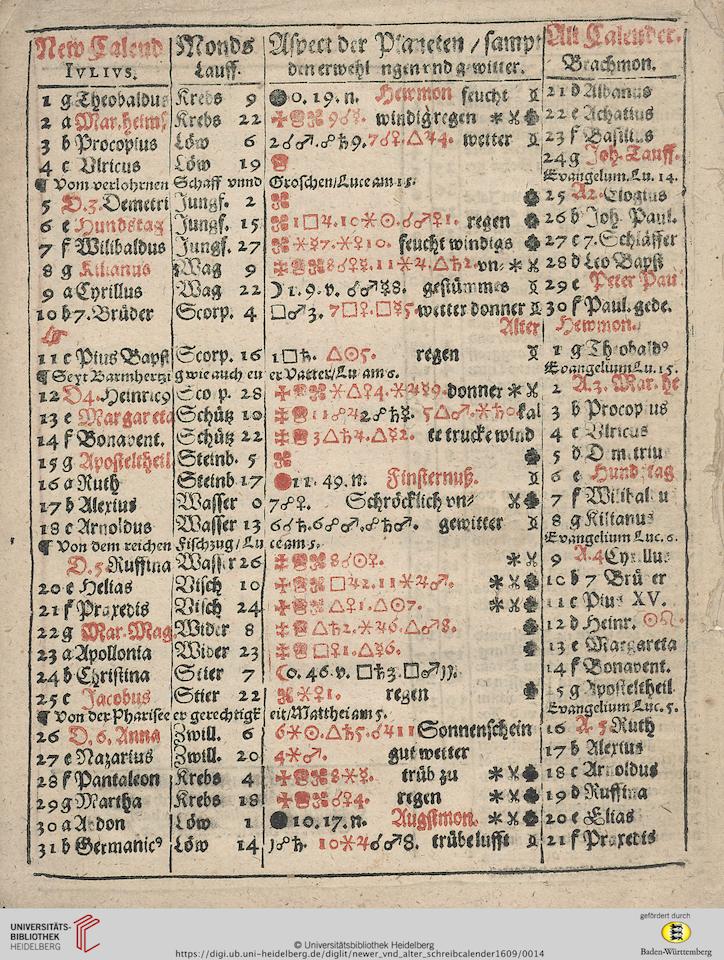 New Calend Monds Aspect der Planeten / sampt Alt Calender.
IVLIVS. Lauff. den erwehl ngen vnd gewitter. Brachmon.
1 g Theobaldus Krebs 9 ●0.19.n. Hewmon feucht 21 d Albanus
2 a Mar.heims Krebs 22 windig regen 22 e Achatius
3 b Procopius Löw 6 wetter 23 f Basilius
4 c Vlricus Löw 19 24 g Joh. Tauff.
Vom verlohrnen Schaff vnnd Groschen/Luce am 15. Evangelium. Lu. 14.
5 D.3. Demetri Jungf. 2 25 A2. Elogius
6 e Hundstag Jungf. 15 regen 26 b Joh. Paul.
7 f Wilibaldus Jungf. 27 feucht windigs 27 c 7. Schläffer
8 g Kilianus Wag 9 vn= 28 d Leo Bapst
9 a Cyrillus Wag 22 ☽1.9.v. ☌♂☿8. gestümmes 29 e Peter Pau
10 b 7. Brüder Scorp. 4 □♂3. 7□♀.□☿5. wetter donner 30 f Paul. gede.
Alter Hewmon.
11 c Pius Bapst Scorp. 16 1□♄. △☉5. regen 1 g Theobald9
Sext Barmhertzig wie auch eu er Vatter/Lu. am 6. Evangelium Lu. 15.
12 D4. Heinric9 Sco p. 28 donner 2 A.3. Mar. he
13 e Margareta Schütz 10 kal 3 b Procop us
14 f Bonavent. Schütz 22 te trucke wind 4 c Vlricus
15 g Aposteltheil Steinb. 5 5 d D m trius
16 a Ruth Steinb 17 ●11.49.n. Finsternuß. 6 e Hund tag
17 b Alexius Wasser 0 7☍♀. Schröcklich vn= 7 f Wilibal u
18 c Arnoldus Wasser 13 6☌♄.6☍♂.☍♄♂. gewitter 8 g Kilianus
Von dem reichen Fischzug/Lu ce am 5. Evangelium Luc. 6.
D.5 Ruffina Wasser 26 8☌☉♀. 9 A.4 Cyrillus
20 e Helias Visch 10 □♃2.11✶♃♂. 10 b 7 Brü er
21 f Praxedis Visch 24 △♀1.△☉7. 11 c Pius XV.
22 g Mar. Mag. Wider 8 △♄2.✶♃6.△♂8. 12 d Heinr. ☉♌
23 a Apollonia Wider 23 □♀1.△☿6. 13 e Margareta
24 b Christina Stier 7 ☾0.46.v. □♄3.□♂ 14 f Bonavent.
25 c Jacobus Stier 22 ✶♀1. regen 15 g Aposteltheil
Von der Pharisee er gerechtigk eit/Matthei am 5. Evangelium Luc. 5.
26 D.6. Anna Zwill. 6 6✶☉.△♄5.☌♃11 Sonnenschein 16 A.5 Ruth
27 e Nazarius Zwill. 20 4✶♂. gut wetter 17 b Alexius
28 f Pantaleon Krebs 4 8✶☿. trüb zu 18 c Arnoldus
29 g Martha Krebs 18 ☌♀4. regen 19 d Ruffina
30 a A don Löw 1 ●10.17.n. Augstmon. 20 e Elias
31 b Germanic9 Löw 14 1☍♄. 10✶♃☌♂8. trübe lufft 21 f Praxedis
UNIVERSITÄTS-
BIBLIOTHEK
HEIDELBERG
© Universitätsbibliothek Heidelberg
https://digi.ub.uni-heidelberg.de/diglit/newer_vnd_alter_schreibcalender1609/0014
gefördert durch
Baden-Württemberg